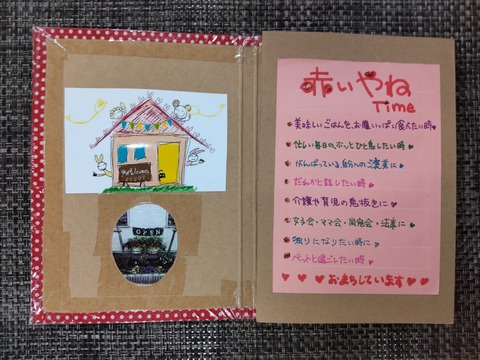 welcome
OPEN
赤いやね
Time
美味しいごはんを、お腹いっぱい食べたい時
忙しい毎日のホッとひと息したい時
がんばっている自分へのご褒美に
だれかと話したい時
介護や育児の息抜きに
女子会・ママ会・同窓会・法事に
独りになりたい時に
ペットと過ごしたい時
おまちしています